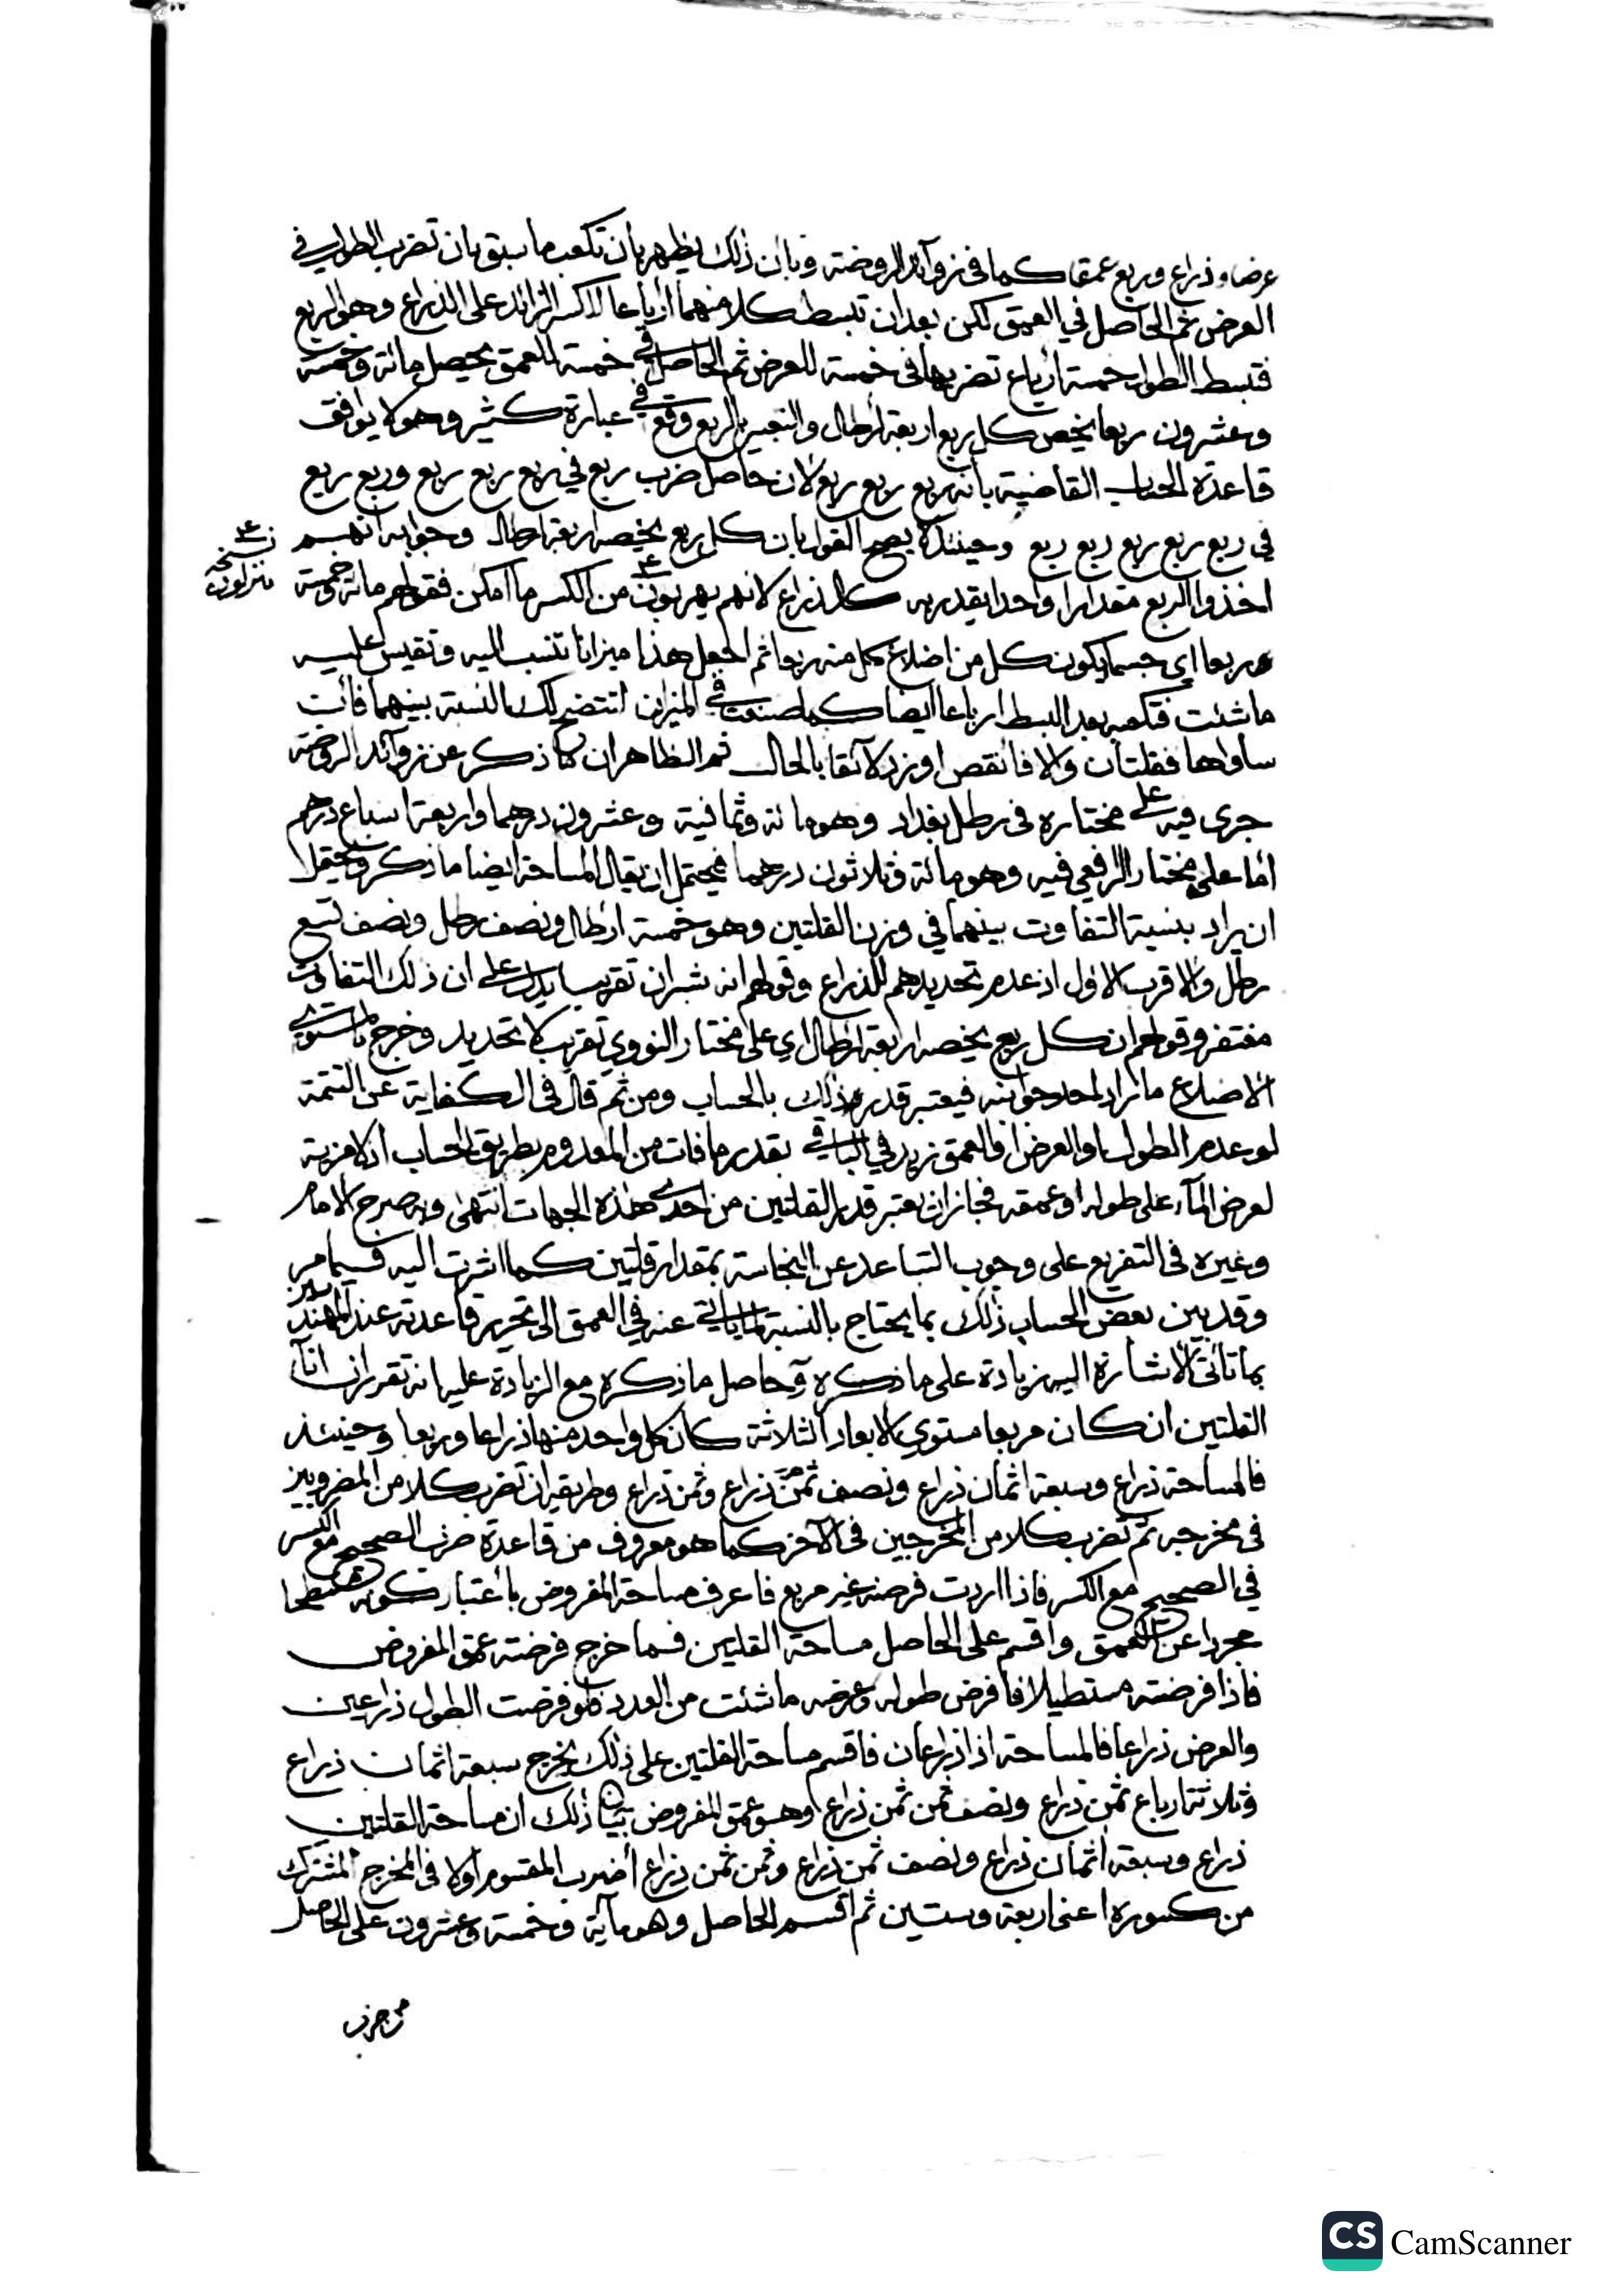 عرضا وذراع وربع عمقا كما في زوآئد الروضة وبيان ذلك يظهر بأن تكعب ما سبق بان تضرب الطول في
العرض ثم الحاصل في العمق لكن بعد ان تبسط كلا منهما ارباعا لاكسر الزائد على الذراع وهو الربع
فتبسط الطول خمسة ارباع تضربها في خمسة للعرض ثم الحاصل في خمسة للعمق يحصل مائة وخمسة
وعشرون ربعا يخص كل ربع اربعة أرطال والتعبير بالربع وقع في عبارة كثير وهو لا يوافق
قاعدة الحساب القاضية بأنه ربع ربع ربع لان حاصل ضرب ربع في ربع ربع ربع وربع ربع
في ربع ربع ربع ربع ربع وحينئذ لا يصح القول بان كل ربع يخصه اربعة ارطال وجوابه انهم
نسخة
اخذوا الربع مقدارا واحدا يقدر به كل ذراع لانهم يهربون من الكسر ما امكن فقولهم مائة وخمسة
ربعا اي جسما يكون كل من اضلاع كل منه ربعا ثم اجعل هذا ميزانا تنسب اليه وتقيس عليه
ما شئت فتكعبه بعد البسط ارباعا ايضا كما صنعت في الميزان لتتضح لك النسبة بينهما فان
ساواها فقلتان والا فانقص او زد لآئقا بالحال ثم الظاهر ان ما ذكر عن زوآئد الروضة
جرى فيه على مختاره في رطل بغداد وهو مائة وثمانية وعشرون درهما واربعة اسباع درهم
أما على مختار الرافعي فيه وهو مائة وثلاثون درهما فيحتمل ان يقال المساحة ايضا ما ذكر ويحتمل
ان يراد بنسبة التفاوت بينهما في وزن القلتين وهو خمسة ارطال ونصف رطل ونصف تسع
رطل والاقرب الاول اذ عدم تحديدهم للذراع وقولهم انه شبران تقريبا يدل على ان ذلك التفاوت
مغتفر وقولهم ان كل ربع يخصه اربعة ارطال اي على مختار النووي تقريب لا تحديد وخرج بالمستوي
الاضلاع ما زاد احد جوانبه فيعتبر قدر ذلك بالحساب ومن ثم قال في الكفاية عن التتمة
لو عدم الطول او العرض او العمق زيد في الباقي بقدر ما فات من المعدوم بطريق الحساب اذ لا مزية
لعرض المآء على طوله او عمقه فجاز ان يعتبر قدر القلتين من احدى هذه الجهات انتهى وبه صرح الامام
وغيره في التفريع على وجوب التباعد عن النجاسة بمقدار قلتين كما اشرت اليه فيما مر
وقد بين بعض الحساب ذلك بما يحتاج بالنسبة لما ياتي عنه في العمق الى تحرير قاعدته عند المهندسين
بما تأتي الاشارة اليه زيادة على ما ذكره وحاصل ما ذكره مع الزيادة عليه انه تقرر ان انآء
القلتين ان كان مربعا مستوي الابعاد الثلاثة كان كل واحد منها ذراعا وربعا وحينئذ
فالمساحة ذراع وسبعة اثمان ذراع ونصف ثمن ذراع وثمن ذراع وطريقه ان تضرب كلا من المضروبين
في مخرجه ثم تضرب كلا من المخرجين في الآخر كما هو معروف من قاعدة ضرب الصحيح مع الكسر
في الصحيح مع الكسر فاذا اردت فرضه غير مربع فاعرف مساحة المفروض باعتبار كونه سطحا
مجردا عن العمق واقسم على الحاصل مساحة القلتين فما خرج فرضته عمق المفروض
فاذا فرضته مستطيلا فافرض طوله وعرضه ما شئت من العدد فلو فرضت الطول ذراعين
والعرض ذراعا فالمساحة اذا ذراعان فاقسم مساحة القلتين على ذلك يخرج سبعة اثمان ذراع
وثلاثة ارباع ثمن ذراع ونصف ثمن ثمن ذراع وهو عمق المفروض بيان ذلك ان مساحة القلتين
ذراع وسبعة اثمان ذراع ونصف ثمن ذراع وثمن ثمن ذراع أضرب المقسوم اولا في المخرج المشترك
من كسوره اعني اربعة وستين ثم اقسم الحاصل وهو مآية وخمسة وعشرون على الحاصل
من ضرب
CS CamScanner